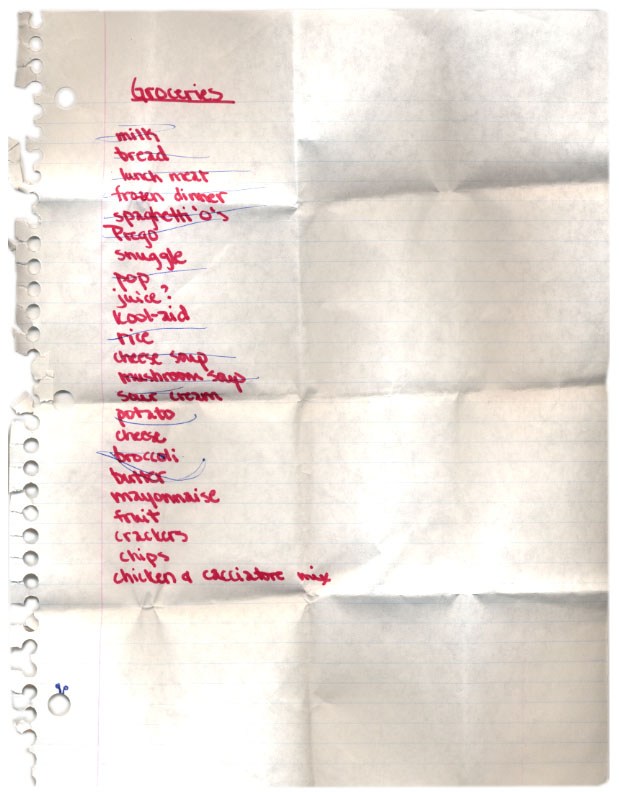 Groceries
milk
bread
lunch meat
frozen dinner
spaghetti 'o's
Prego
snuggle
pop
juice?
Kool-aid
rice
cheese soup
mushroom soup
sour cream
potato
cheese
broccoli
butter
mayonnaise
fruit
crackers
chips
chicken & cacciatore mix